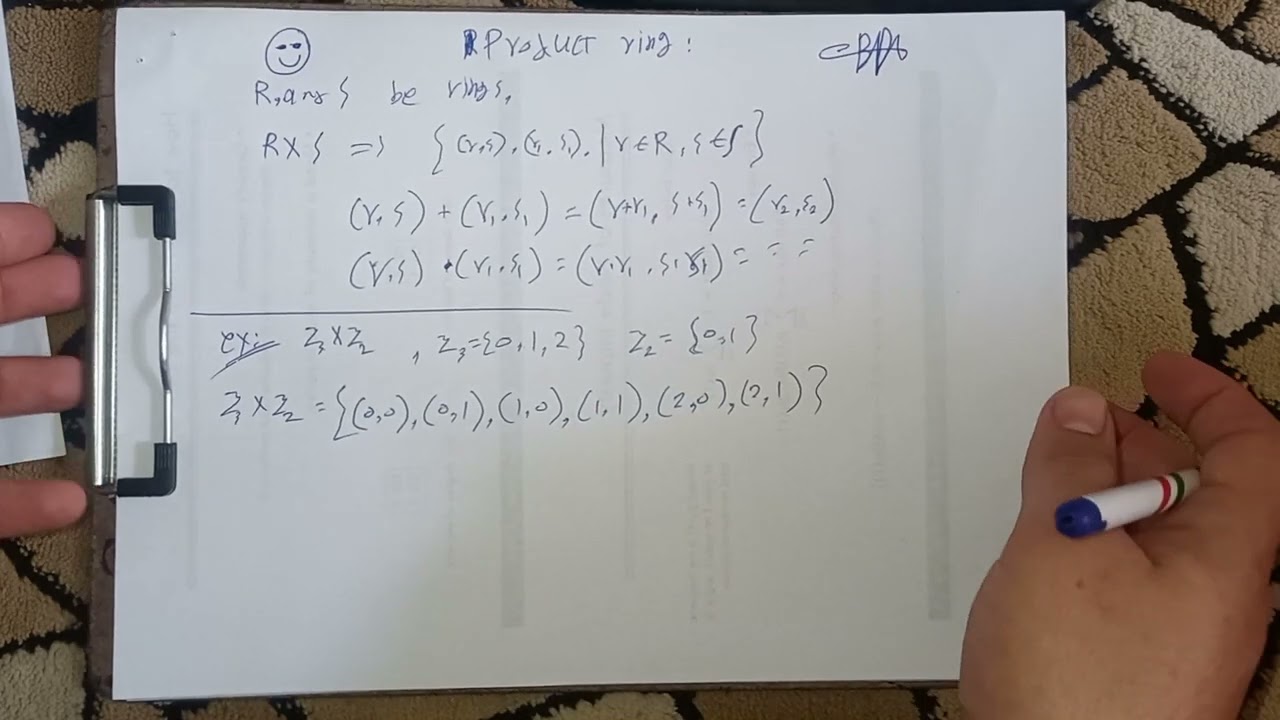 Product ring:
R, and S be rings,
R×S => {(r,s),(r₁,s₁).|r∈R, s∈S}
(r,s)+(r₁,s₁)=(r+r₁, s+s₁)=(r₂,s₂)
(r,s)·(r₁,s₁)=(r·r₁, s·s₁)= = =
ex: Z₃×Z₂ , Z₃={0,1,2} Z₂={0,1}
Z₃×Z₂={(0,0),(0,1),(1,0),(1,1),(2,0),(2,1)}